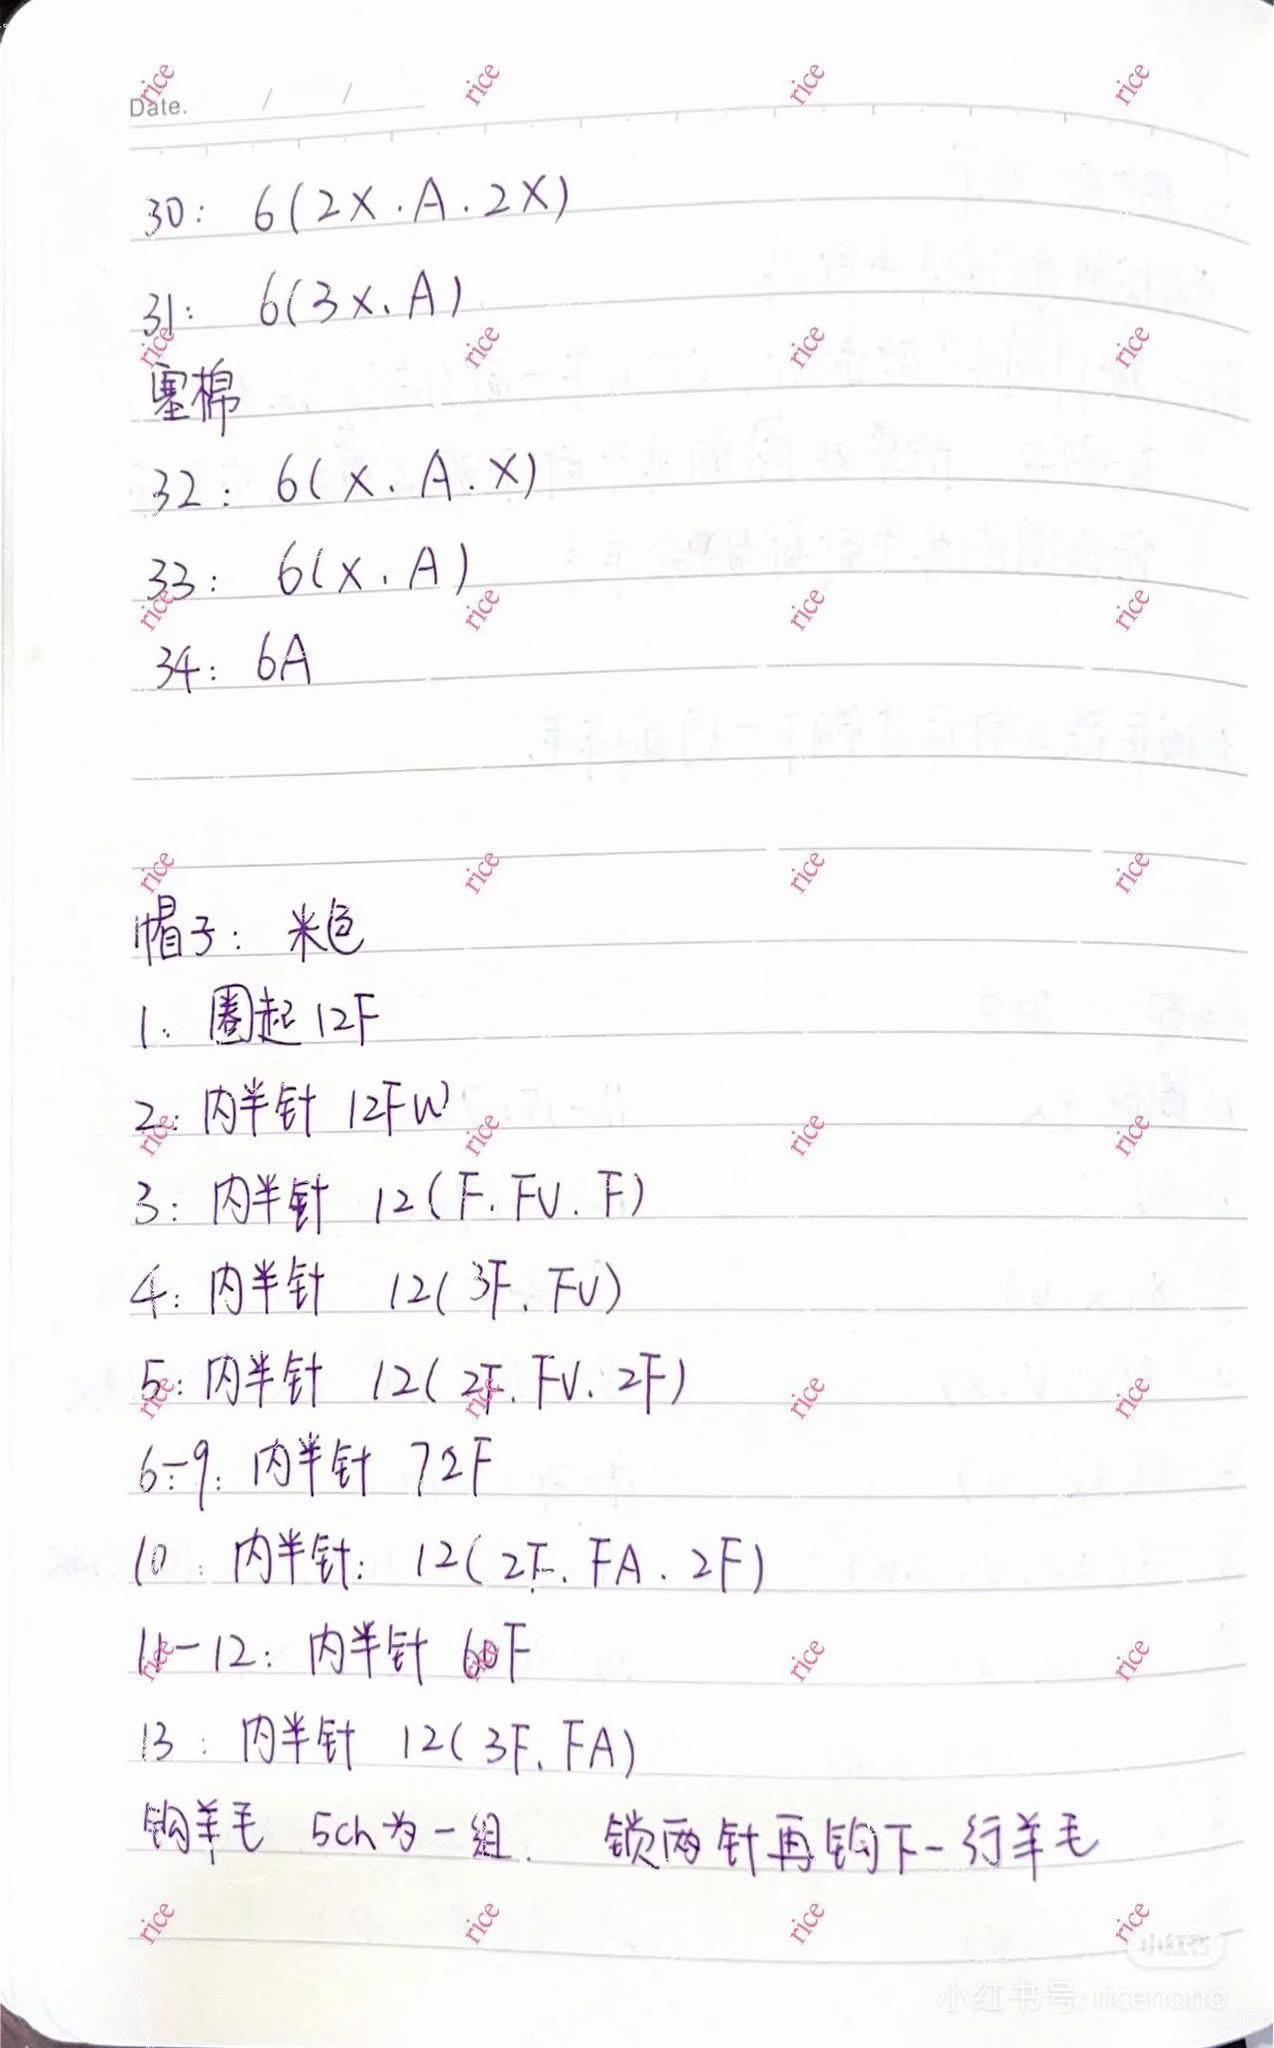 Date. / /
30: 6(2X.A.2X)
31: 6(3X.A)
塞棉
32: 6(X.A.X)
33: 6(X.A)
34: 6A
帽子: 米色
1: 圈起12F
2: 内半针 12FW
3: 内半针 12(F.FV.F)
4: 内半针 12(3F.FV)
5: 内半针 12(2F.FV.2F)
6-9: 内半针 72F
10: 内半针: 12(2F.FA.2F)
11-12: 内半针 60F
13: 内半针 12(3F.FA)
钩羊毛 5ch为一组. 锁两针再钩下一行羊毛
rice rice rice rice
rice rice rice rice
rice rice rice rice
rice rice rice rice
rice rice rice rice
rice rice rice rice
rice rice rice rice
rice rice rice rice
小红书
小红书号: ricenono